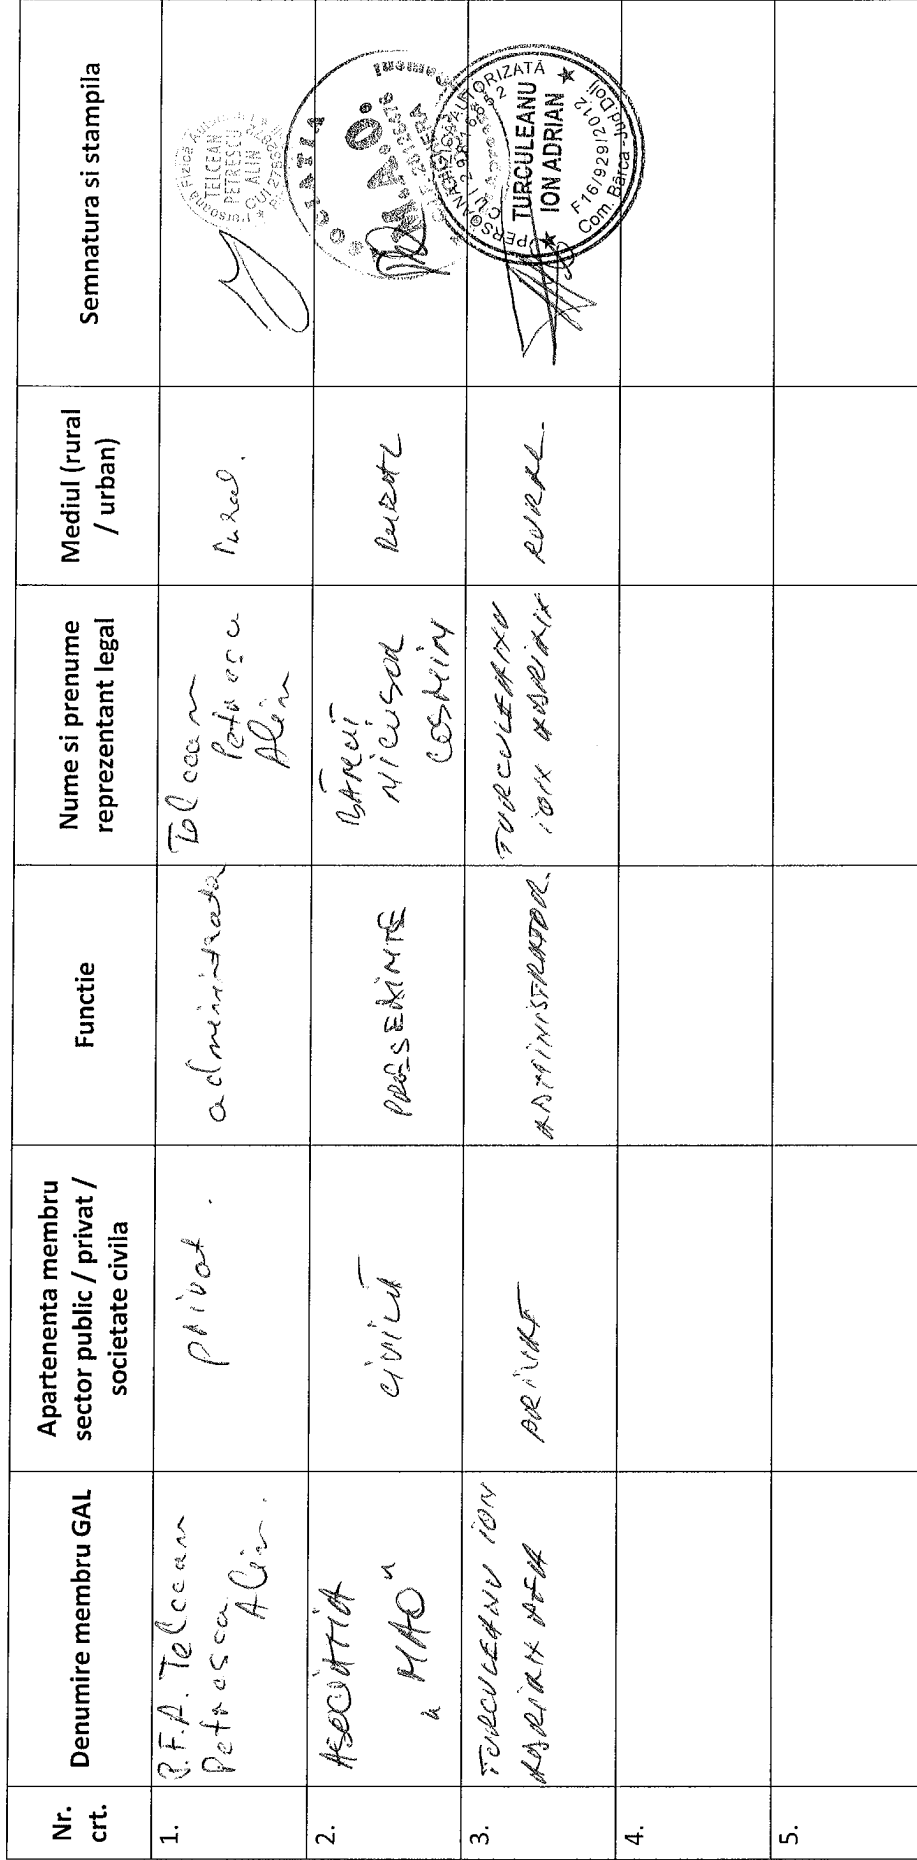 Nr.
crt.
Denumire membru GAL
Apartenenta membru
sector public / privat /
societate civila
Functie
Nume si prenume
reprezentant legal
Mediul (rural
/ urban)
Semnatura si stampila
1.
P.F.A. Telcean
Petrescu
Alin.
privat.
administrator
Telcean
Petrescu
Alin
rural.
TELCEAN
PETRESCU
ALIN
2.
ASOCIATIA
"MAO"
CIVILĂ
PREȘEDINTE
NICUSOR
COSMIN
RURAL
3.
TURCULEANU ION
ADRIAN PFA
PRIVAT
ADMINISTRATOR.
TURCULEANU
ION ADRIAN
RURAL.
PERSOANĂ FIZICĂ AUTORIZATĂ
TURCULEANU
ION ADRIAN
F16/929/2012
Com. Bârca - Jud Dolj
4.
5.